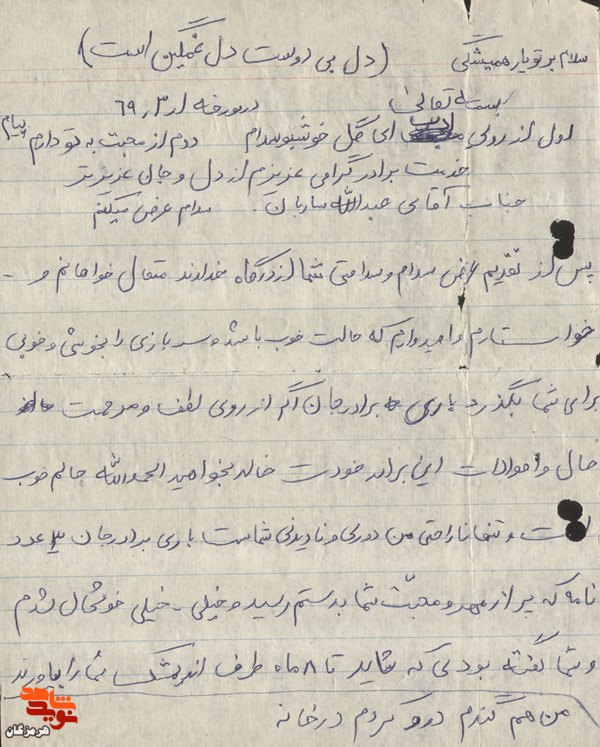 سلام بر تو یار همیشگی (دل بی دوست دل غمگین است)
بسمه تعالی در مورخه ۶۹,۳,۱
اول از روی ادب ای گل خوشبو سلام دوم از محبت به تو دارم پیام
خدمت برادر گرامی عزیزم از دل و جان عزیزتر
جناب آقای عبدالله ساربان. سلام عرض میکنم
پس از تقدیم عرض سلام و سلامتی شما از درگاه خداوند متعال خواهانم و -
خواستارم و امیدوارم که حالت خوب باشد و سربازی را بخوشی و خوبی
برای شما بگذرد باری برادر جان اگر از روی لطف و مرحمت
حال و احوالات این برادر خودت خالد بخواهید الحمدالله حالم خوب
است و تنها ناراحتی من دوری و نادیدنی شماست باری برادر جان ۳ عدد
نامه که پر از مهر و محبت شما بدستم رسید و خیلی - خیلی خوشحال شدم
و شما گفته بودی که شاید تا ۸ ماه طرف اندیمشک شما را بیاورند
من هم گندم درو کردم در خانه
نوید شاهد
هرمزگان